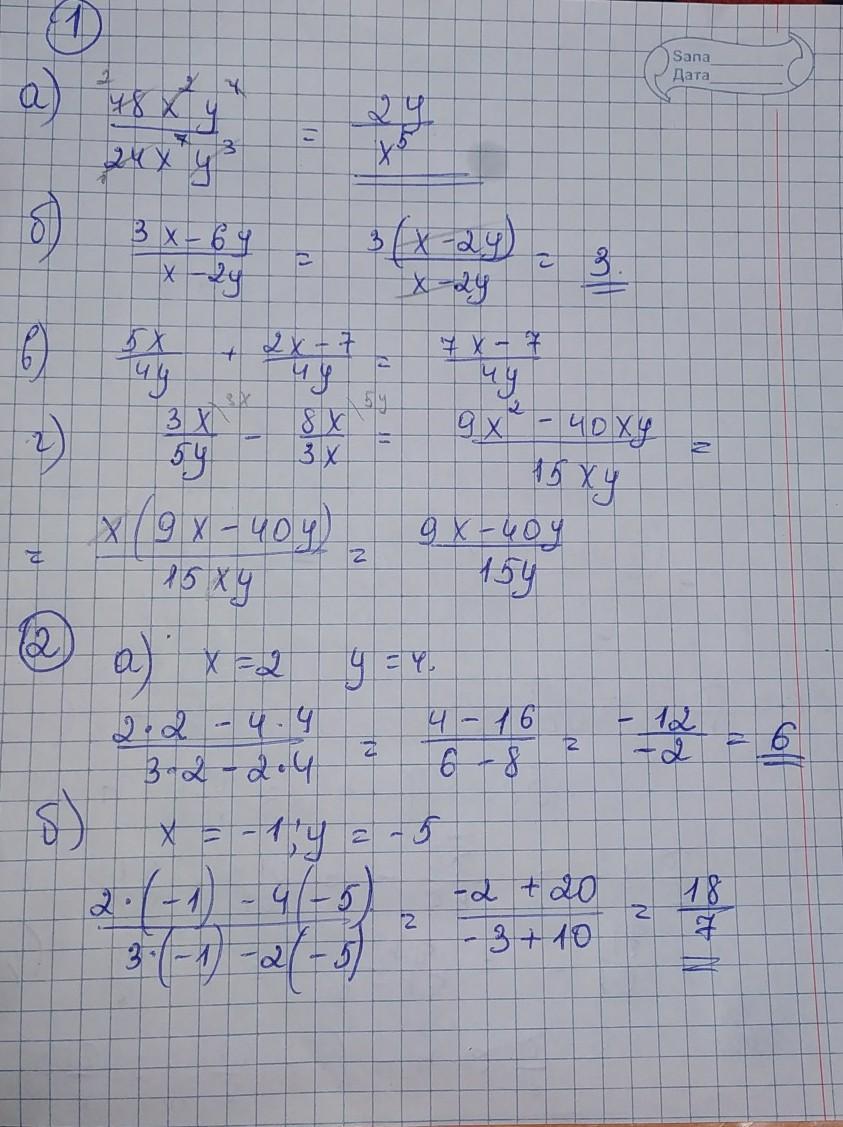 1
Sana
Дата
а) 48x²y⁴/24x⁷y³ = 2y/x⁵
б) 3x-6y/x-2y = 3(x-2y)/x-2y = 3.
в) 5x/4y + 2x-7/4y = 7x-7/4y
г) 3x\3x/5y - 8x\5y/3x = 9x²-40xy/15xy =
= x(9x-40y)/15xy = 9x-40y/15y
2 а) x=2 y=4.
2·2-4·4/3·2-2·4 = 4-16/6-8 = -12/-2 = 6
б) x=-1; y=-5
2·(-1)-4(-5)/3·(-1)-2(-5) = -2+20/-3+10 = 18/7